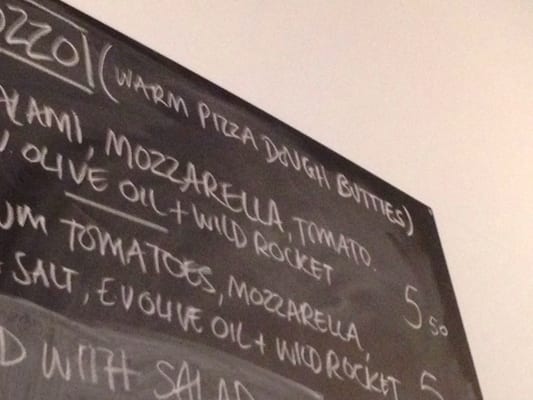 OZZO (WARM PIZZA DOUGH BUTTIES)
ALAMI, MOZZARELLA, TOMATO.
V OLIVE OIL + WILD ROCKET
5 50
UM TOMATOES, MOZZARELLA,
SALT, EV OLIVE OIL + WILD ROCKET 5
D WITH SALAD